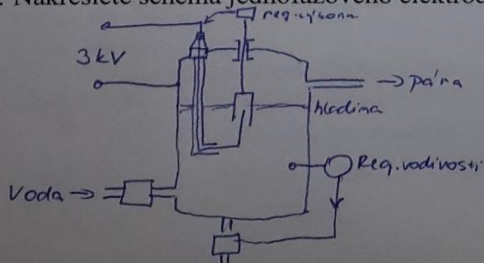 . Nakreslete schéma jednofázového elektrod
reg. výkonu
3kV
→ pára
hladina
Reg. vodivosti
Voda →